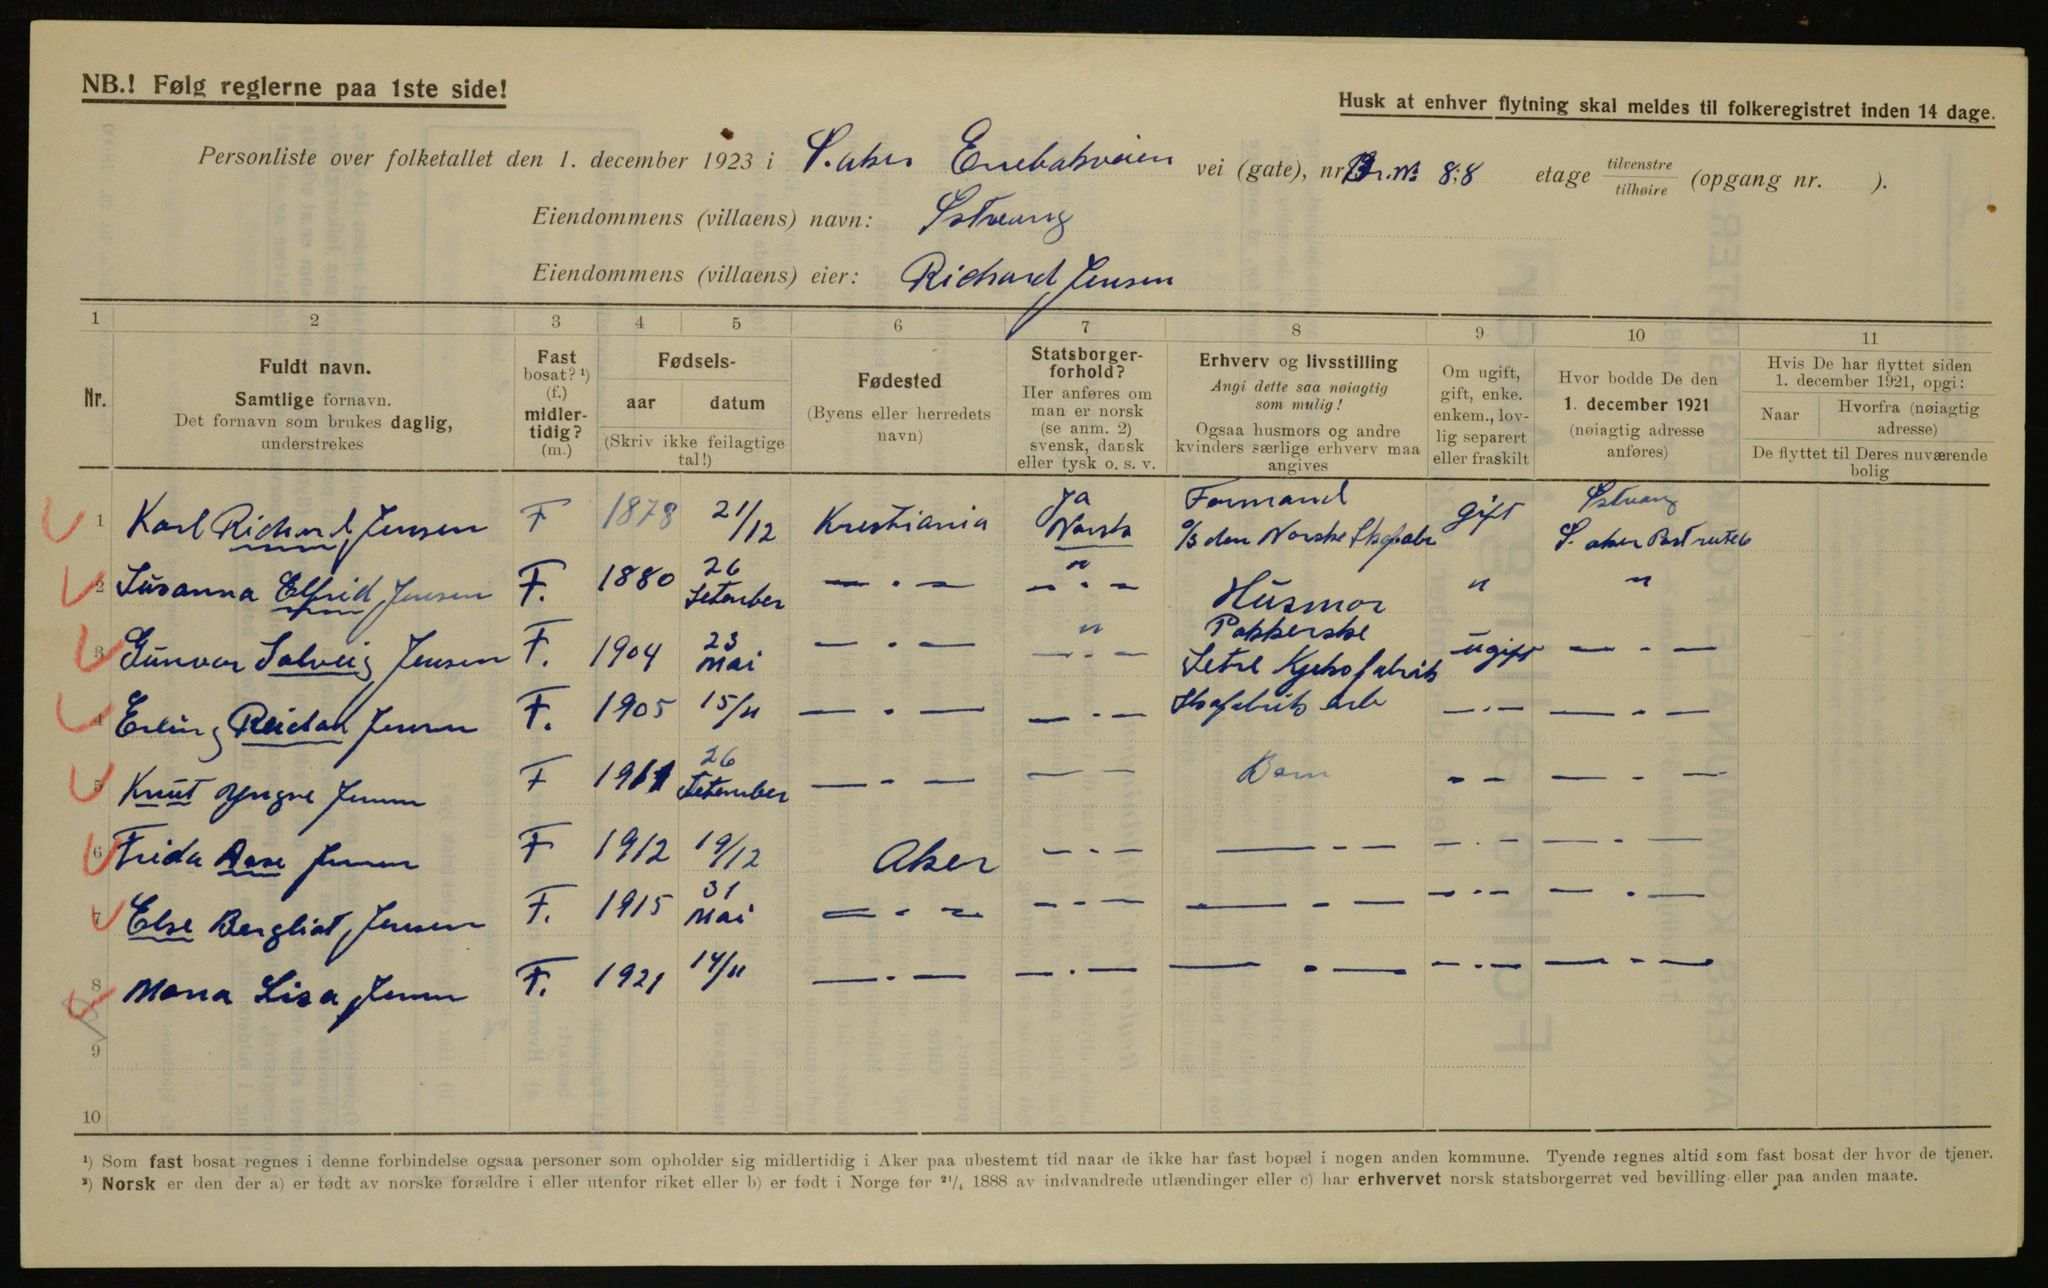 NB.! Følg reglerne paa 1ste side!
Husk at enhver flytning skal meldes til folkeregistret inden 14 dage.
Personliste over folketallet den 1. december 1923 i S. aker Enebakveien vei (gate), nr. Br. No 88 etage tilvenstre / tilhøire (opgang nr. ).
Eiendommens (villaens) navn: Østvang
Eiendommens (villaens) eier: Richard Jensen
1 2 3 4 5 6 7 8 9 10 11
Nr.
Fuldt navn.
Samtlige fornavn.
Det fornavn som brukes daglig,
understrekes
Fast
bosat? ¹)
(f.)
midler-
tidig?
(m.)
Fødsels-
aar datum
(Skriv ikke feilagtige
tal!)
Fødested
(Byens eller herredets
navn)
Statsborger-
forhold?
Her anføres om
man er norsk
(se anm. 2)
svensk, dansk
eller tysk o. s. v.
Erhverv og livsstilling
Angi dette saa nøiagtig
som mulig!
Ogsaa husmors og andre
kvinders særlige erhverv maa
angives
Om ugift,
gift, enke.
enkem., lov-
lig separert
eller fraskilt
Hvor bodde De den
1. december 1921
(nøiagtig adresse
anføres)
Hvis De har flyttet siden
1. december 1921, opgi:
Naar Hvorfra (nøiagtig
adresse)
De flyttet til Deres nuværende
bolig
1 Karl Richard Jensen F 1878 21/12 Krestiania Ja Norsk Formand den Norske gift Østvang S. aker
2 Susanna Elfrid Jensen F. 1880 26 Setember — . — " — . — Husmor " "
3 Gunvor Solveig Jensen F. 1904 23 Mai — . — " — . — Pakkerske Setre Kjeksfabrik ugift — . —
4 Erling Reidar Jensen F. 1905 15/11 — . — — . — Skofabrik arb — . — — . —
5 Knut Yngve Jensen F 1911 26 Setember — . — — — Barn — — — . —
6 Frida Aase Jensen F 1912 19/12 Aker — . — — — — — . — — . —
7 Else Bergliot Jensen F. 1915 31 Mai — . — — . — — — — — . — — . —
8 Mona Lisa Jensen F. 1921 14/11 — . — — . — — . — — . — — . —
9
10
¹) Som fast bosat regnes i denne forbindelse ogsaa personer som opholder sig midlertidig i Aker paa ubestemt tid naar de ikke har fast bopæl i nogen anden kommune. Tyende regnes altid som fast bosat der hvor de tjener.
²) Norsk er den der a) er født av norske forældre i eller utenfor riket eller b) er født i Norge før ²¹/₄ 1888 av indvandrede utlændinger eller c) har erhvervet norsk statsborgerret ved bevilling eller paa anden maate.